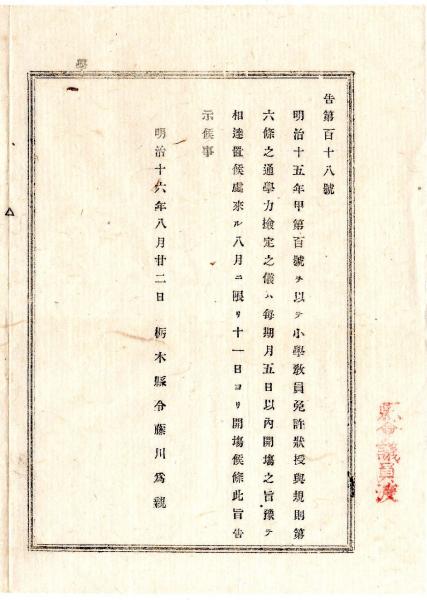 告第百十八號
明治十五年甲第百號ヲ以テ小學敎員免許狀授與規則第
六條之通學力檢定之儀ハ每期月五日以內開塲之旨豫テ
相達置候處來ル八月ニ限リ十一日ヨリ開塲候條此旨告
示候事
明治十六年八月廿二日 栃木縣令藤川爲親
學
議員